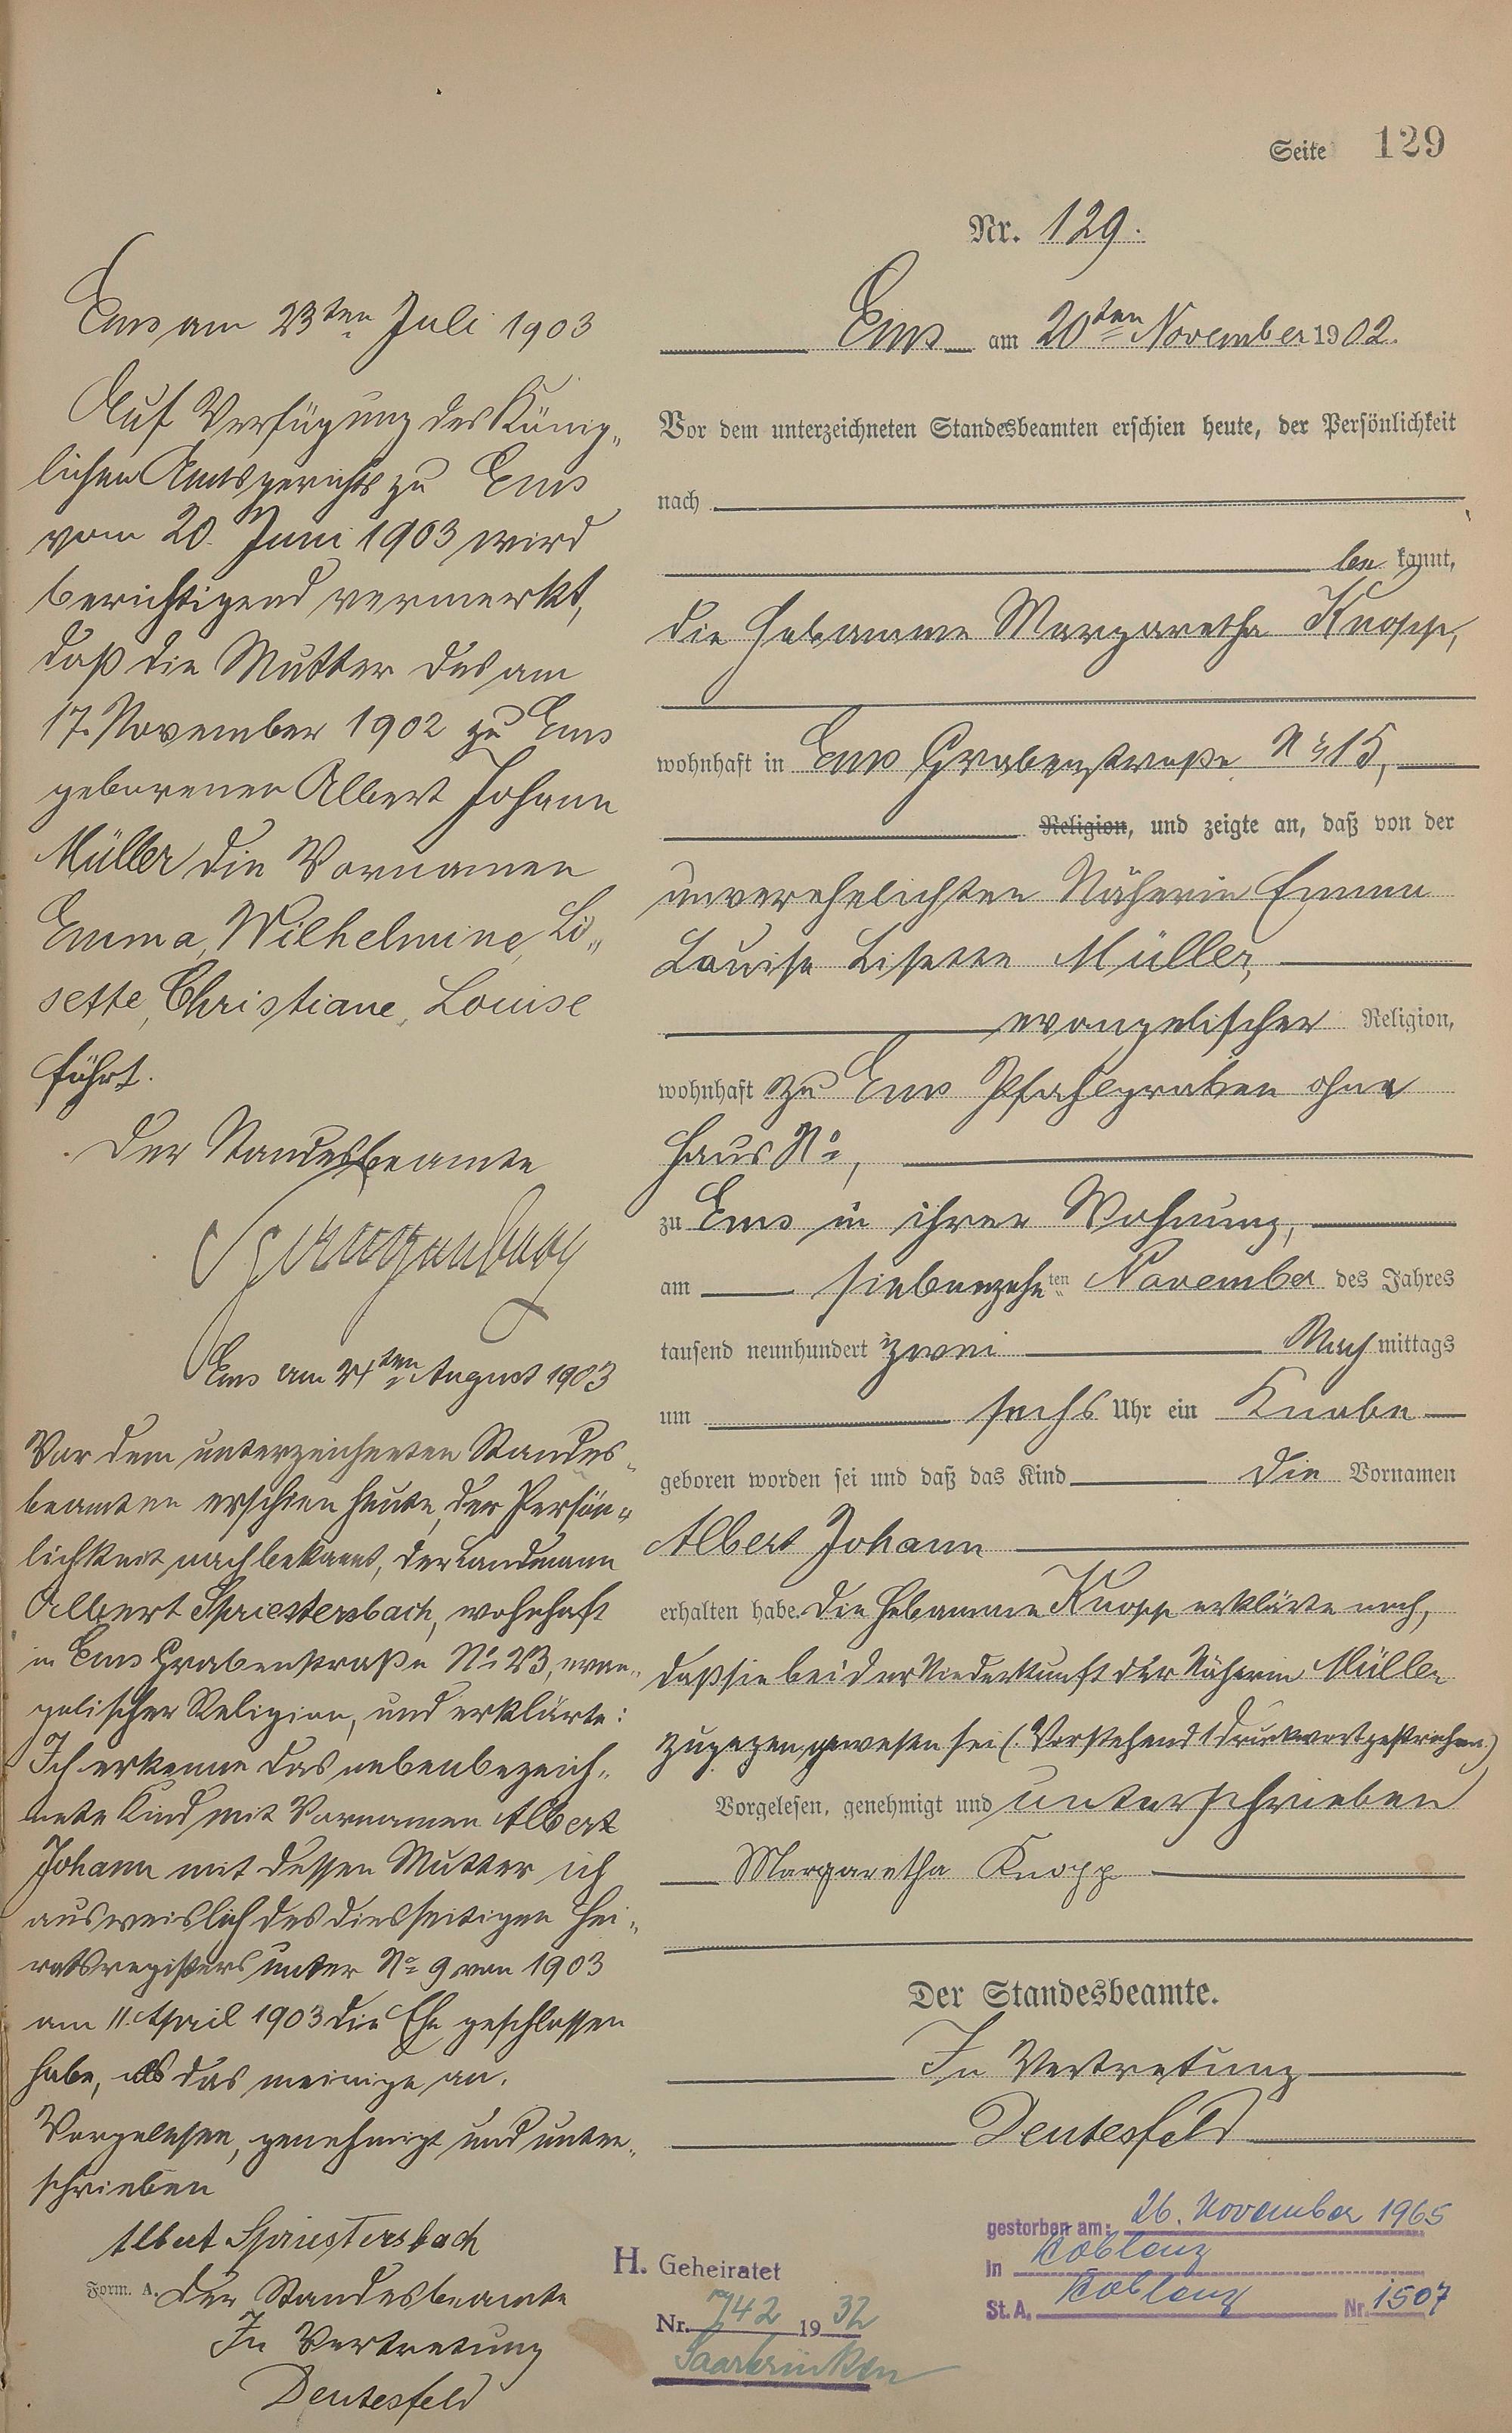 Seite 129
Nr. 129.
Ems am 20ten November 1902.
Vor dem unterzeichneten Standesbeamten erschien heute, der Persönlichkeit
nach
be kannt,
die Hebamme Margaretha Knopp,
wohnhaft in Ems Grabenstraße No 15,
Religion, und zeigte an, daß von der
unverehelichten Näherin Emma
Louise Lisette Müller,
evangelischer Religion,
wohnhaft zu Ems Pfahlgraben ohne
Haus No,
zu Ems in ihrer Wohnung,
am siebenzehnten November des Jahres
tausend neunhundert zwei Nachmittags
um sechs Uhr ein Knabe
geboren worden sei und daß das Kind die Vornamen
Albert Johann
erhalten habe. Die Hebamme Knopp erklärte noch,
daß sie bei der Niederkunft der Näherin Müller
zugegen gewesen sei (Vorstehend 1 Druckwort gestrichen)
Vorgelesen, genehmigt und unterschrieben
Margaretha Knopp
Der Standesbeamte.
In Vertretung
Deutesfeld
Ems am 23ten Juli 1903
Auf Verfügung des König„
lichen Amtsgerichts zu Ems
vom 20. Juni 1903 wird
berichtigend vermerkt,
daß die Mutter des am
17. November 1902 zu Ems
geborenen Albert Johann
Müller die Vornamen
Emma, Wilhelmine, Li„
sette, Christiane, Louise
führt.
Der Standesbeamte
Ems am 24ten August 1903
Vor dem unterzeichneten Standes„
beamten erschien heute, der Persön„
lichkeit nach bekannt, der Landmann
Albert Spriestersbach, wohnhaft
in Ems Grabenstraße No 23, evan„
gelischer Religion, und erklärte:
Ich erkenne das nebenbezeich„
nete Kind mit Vornamen Albert
Johann mit dessen Mutter ich
ausweislich des diesseitigen Hei„
ratsregisters unter No 9 von 1903
am 11. April 1903 die Ehe geschlossen
habe, als das meinige an.
Vorgelesen, genehmigt und unter„
schrieben
Albert Spriestersbach
Form. A. Der Standesbeamte
In Vertretung
Deutesfeld
H. Geheiratet
Nr. 742 1932
Saarbrücken
gestorben am: 26. November 1965
in Koblenz
St. A. Koblenz Nr. 1507